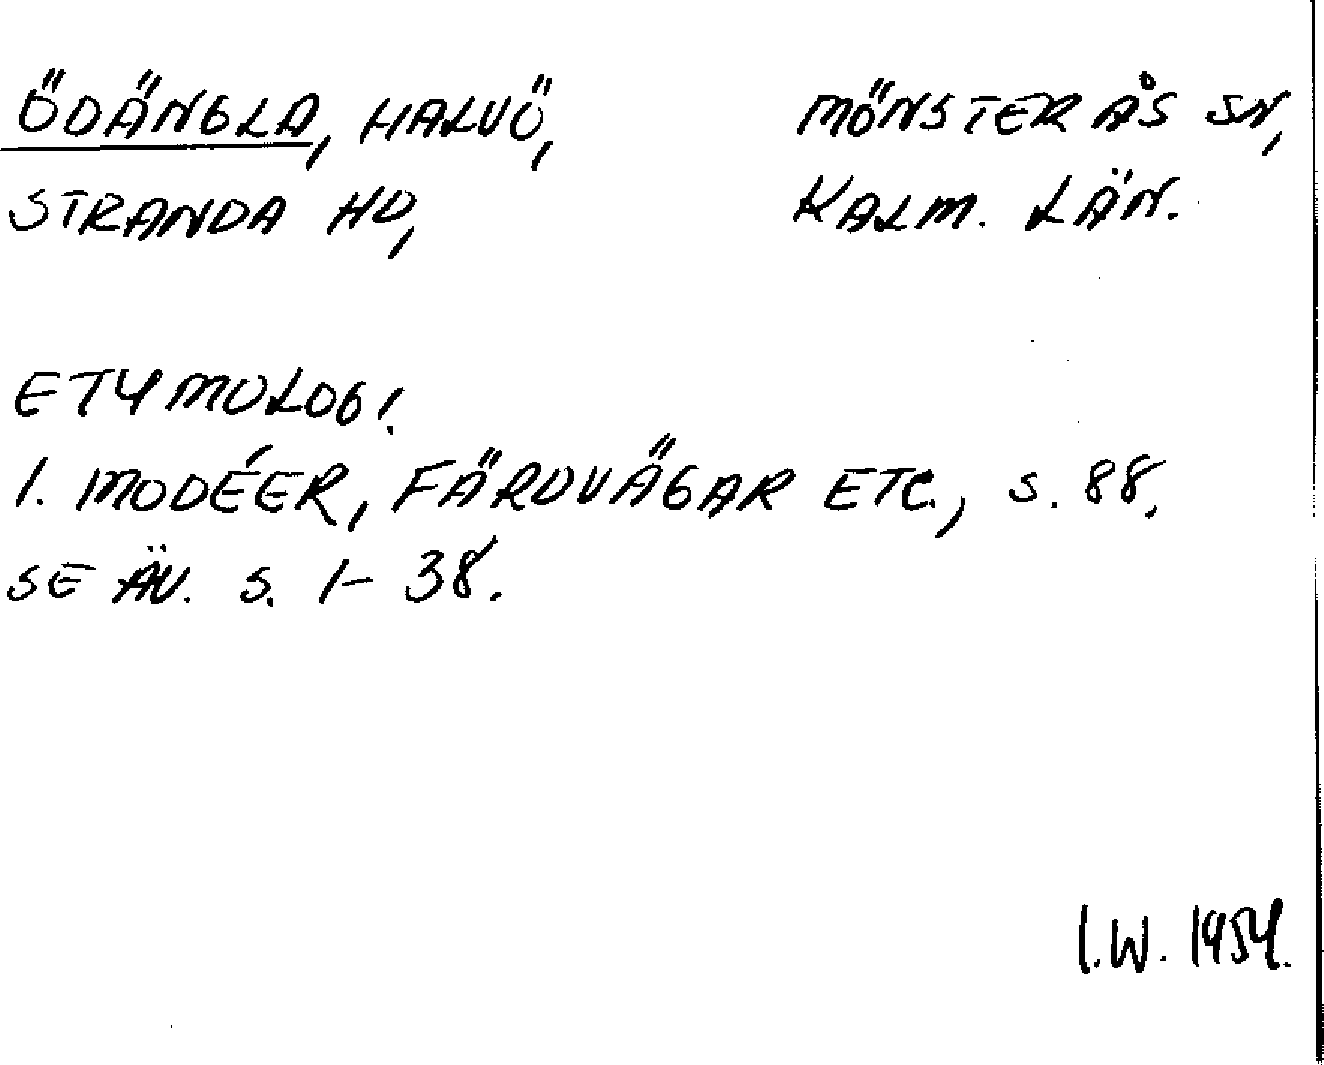 ÖDÄNGLA, HALVÖ, MÖNSTERÅS SN,
STRANDA HD, KALM. LÄN.
ETYMOLOGI.
I. MODÉER, FÄRDVÄGAR ETC., S. 88.
SE ÄV. S. 1-38.
I.W. 1954.